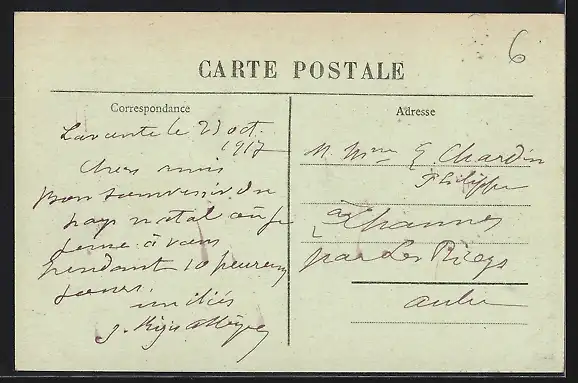 6
CARTE POSTALE
Correspondance
Adresse
le 23 oct.
1917
Chers amis
Bon souvenir du
pays natal où je
pense à vous
pendant 10 heureux
jours.
amitiés
M. Mme E. Chardin
Philippe
à
par les Riceys
aube